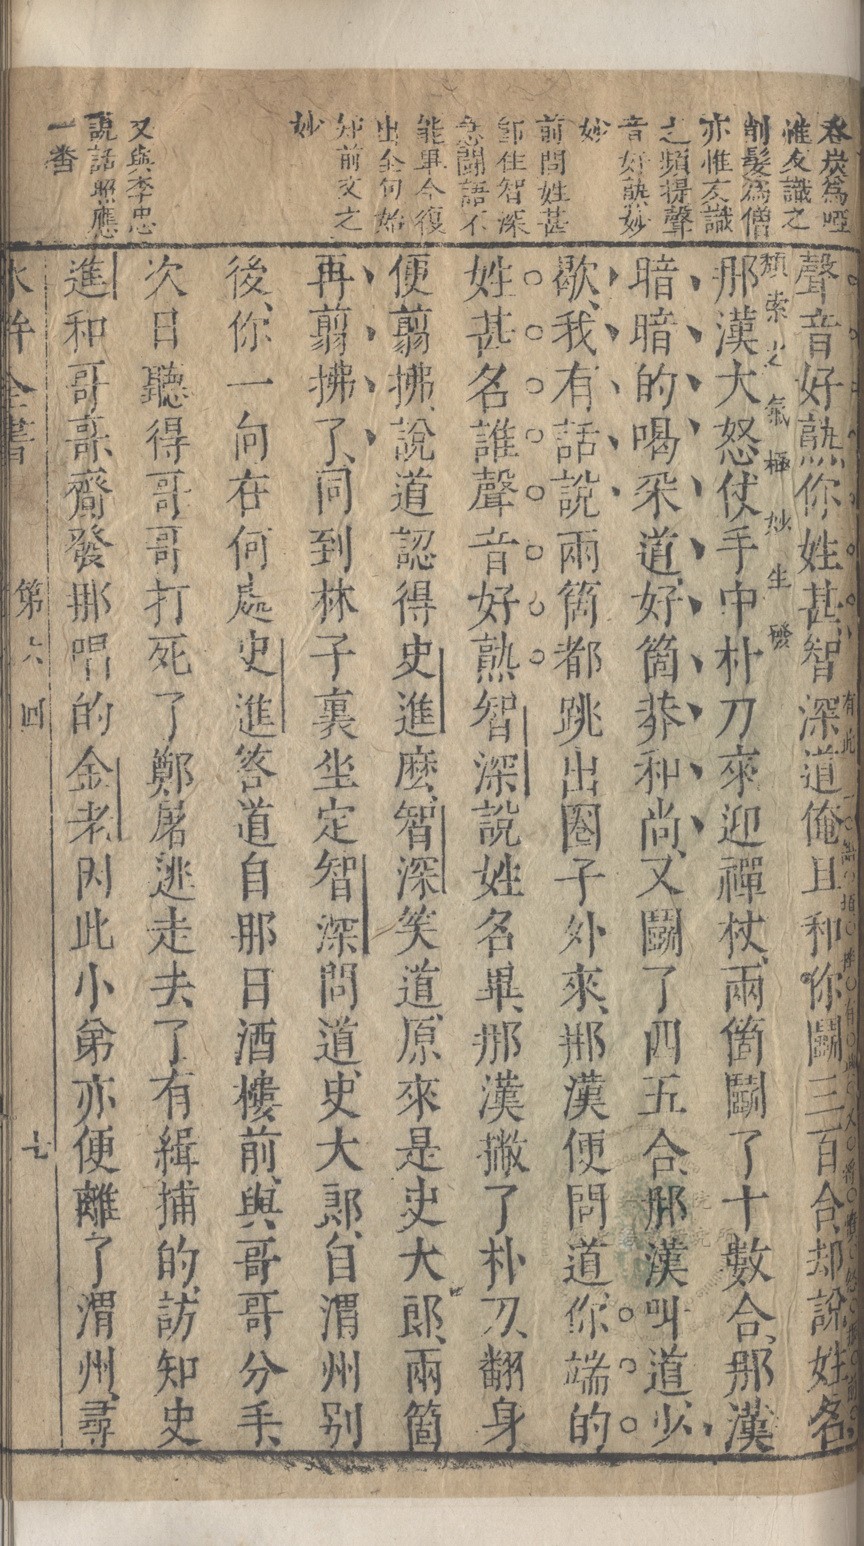 吞炭為啞
惟友識之
削髮為僧
亦惟友識
之頻提聲
音好熟妙
妙
前問姓甚
卽住智深
急鬪語不
能畢今復
出全句始
知前文之
妙
又與李忠
說話照應
一番
聲音好熟你姓甚智深道俺且和你鬪三百合却說姓名
頽索之氣極妙生發
那漢大怒仗手中朴刀來迎禪杖兩箇鬪了十數合那漢
暗暗的喝采道好箇莽和尚又鬪了四五合那漢叫道少
歇我有話說兩箇都跳出圈子外來那漢便問道你端的
姓甚名誰聲音好熟智深說姓名畢那漢撇了朴刀翻身
便翦拂說道認得史進麼智深笑道原來是史大郎兩箇
再翦拂了同到林子裏坐定智深問道史大郎自渭州别
後你一向在何處史進答道自那日酒樓前與哥哥分手
次日聽得哥哥打死了鄭屠逃走去了有緝捕的訪知史
進和哥哥齎發那唱的金老因此小弟亦便離了渭州尋
水滸全書 第六回 七